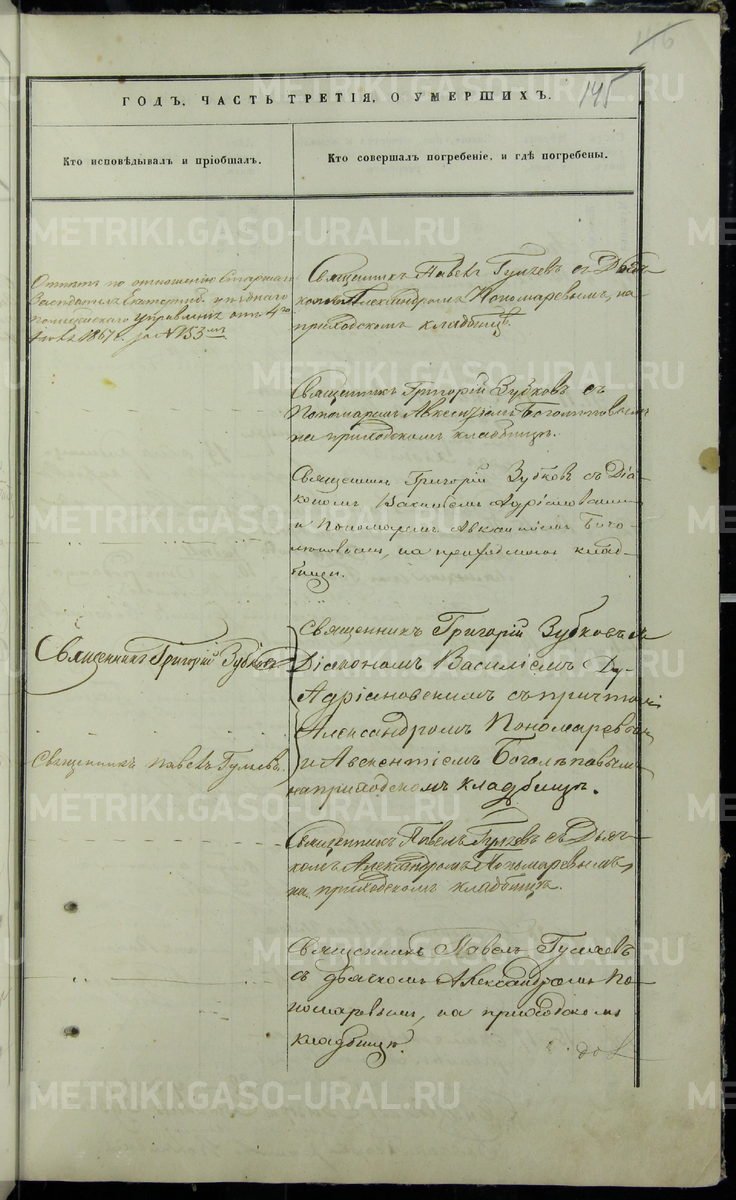 146
145
ГОДЪ, ЧАСТЬ ТРЕТІЯ, О УМЕРШИХЪ.
Кто исповѣдывалъ и пріобщалъ.
Кто совершалъ погребеніе, и гдѣ погребены.
Священникъ Павелъ Гуляевъ съ Дьяч-
комъ Александромъ Пономаревымъ, на
приходскомъ кладбищѣ.
по отношенію
управленія отъ 4го
1867 г. за № 153мъ
Священникъ Григорій Зубковъ съ
Пономаремъ Авксентіемъ Боголѣповымъ
на приходскомъ кладбищѣ.
Священник Григорій Зубковъ съ Діа-
кономъ Василіемъ Адріановскимъ
и Пономаремъ Авксентіемъ Бого-
лѣповымъ, на приходскомъ клад-
бищѣ.
Священникъ Григорій Зубковъ
Священникъ Григорій Зубковъ съ
Діакономъ Василіемъ
Адріановскимъ съ причтомъ
Александромъ Пономаревымъ
и Авксентіемъ Боголѣповымъ
на приходскомъ кладбищѣ.
Священникъ Павелъ Гуляевъ.
Священникъ Павелъ Гуляевъ съ Дьяч-
комъ Александромъ Пономаревымъ,
на приходскомъ кладбищѣ.
Священникъ Павелъ Гуляевъ
съ дьячкомъ Александромъ По-
номаревымъ, на приходскомъ
кладбищѣ.
METRIKI.GASO-URAL.RU